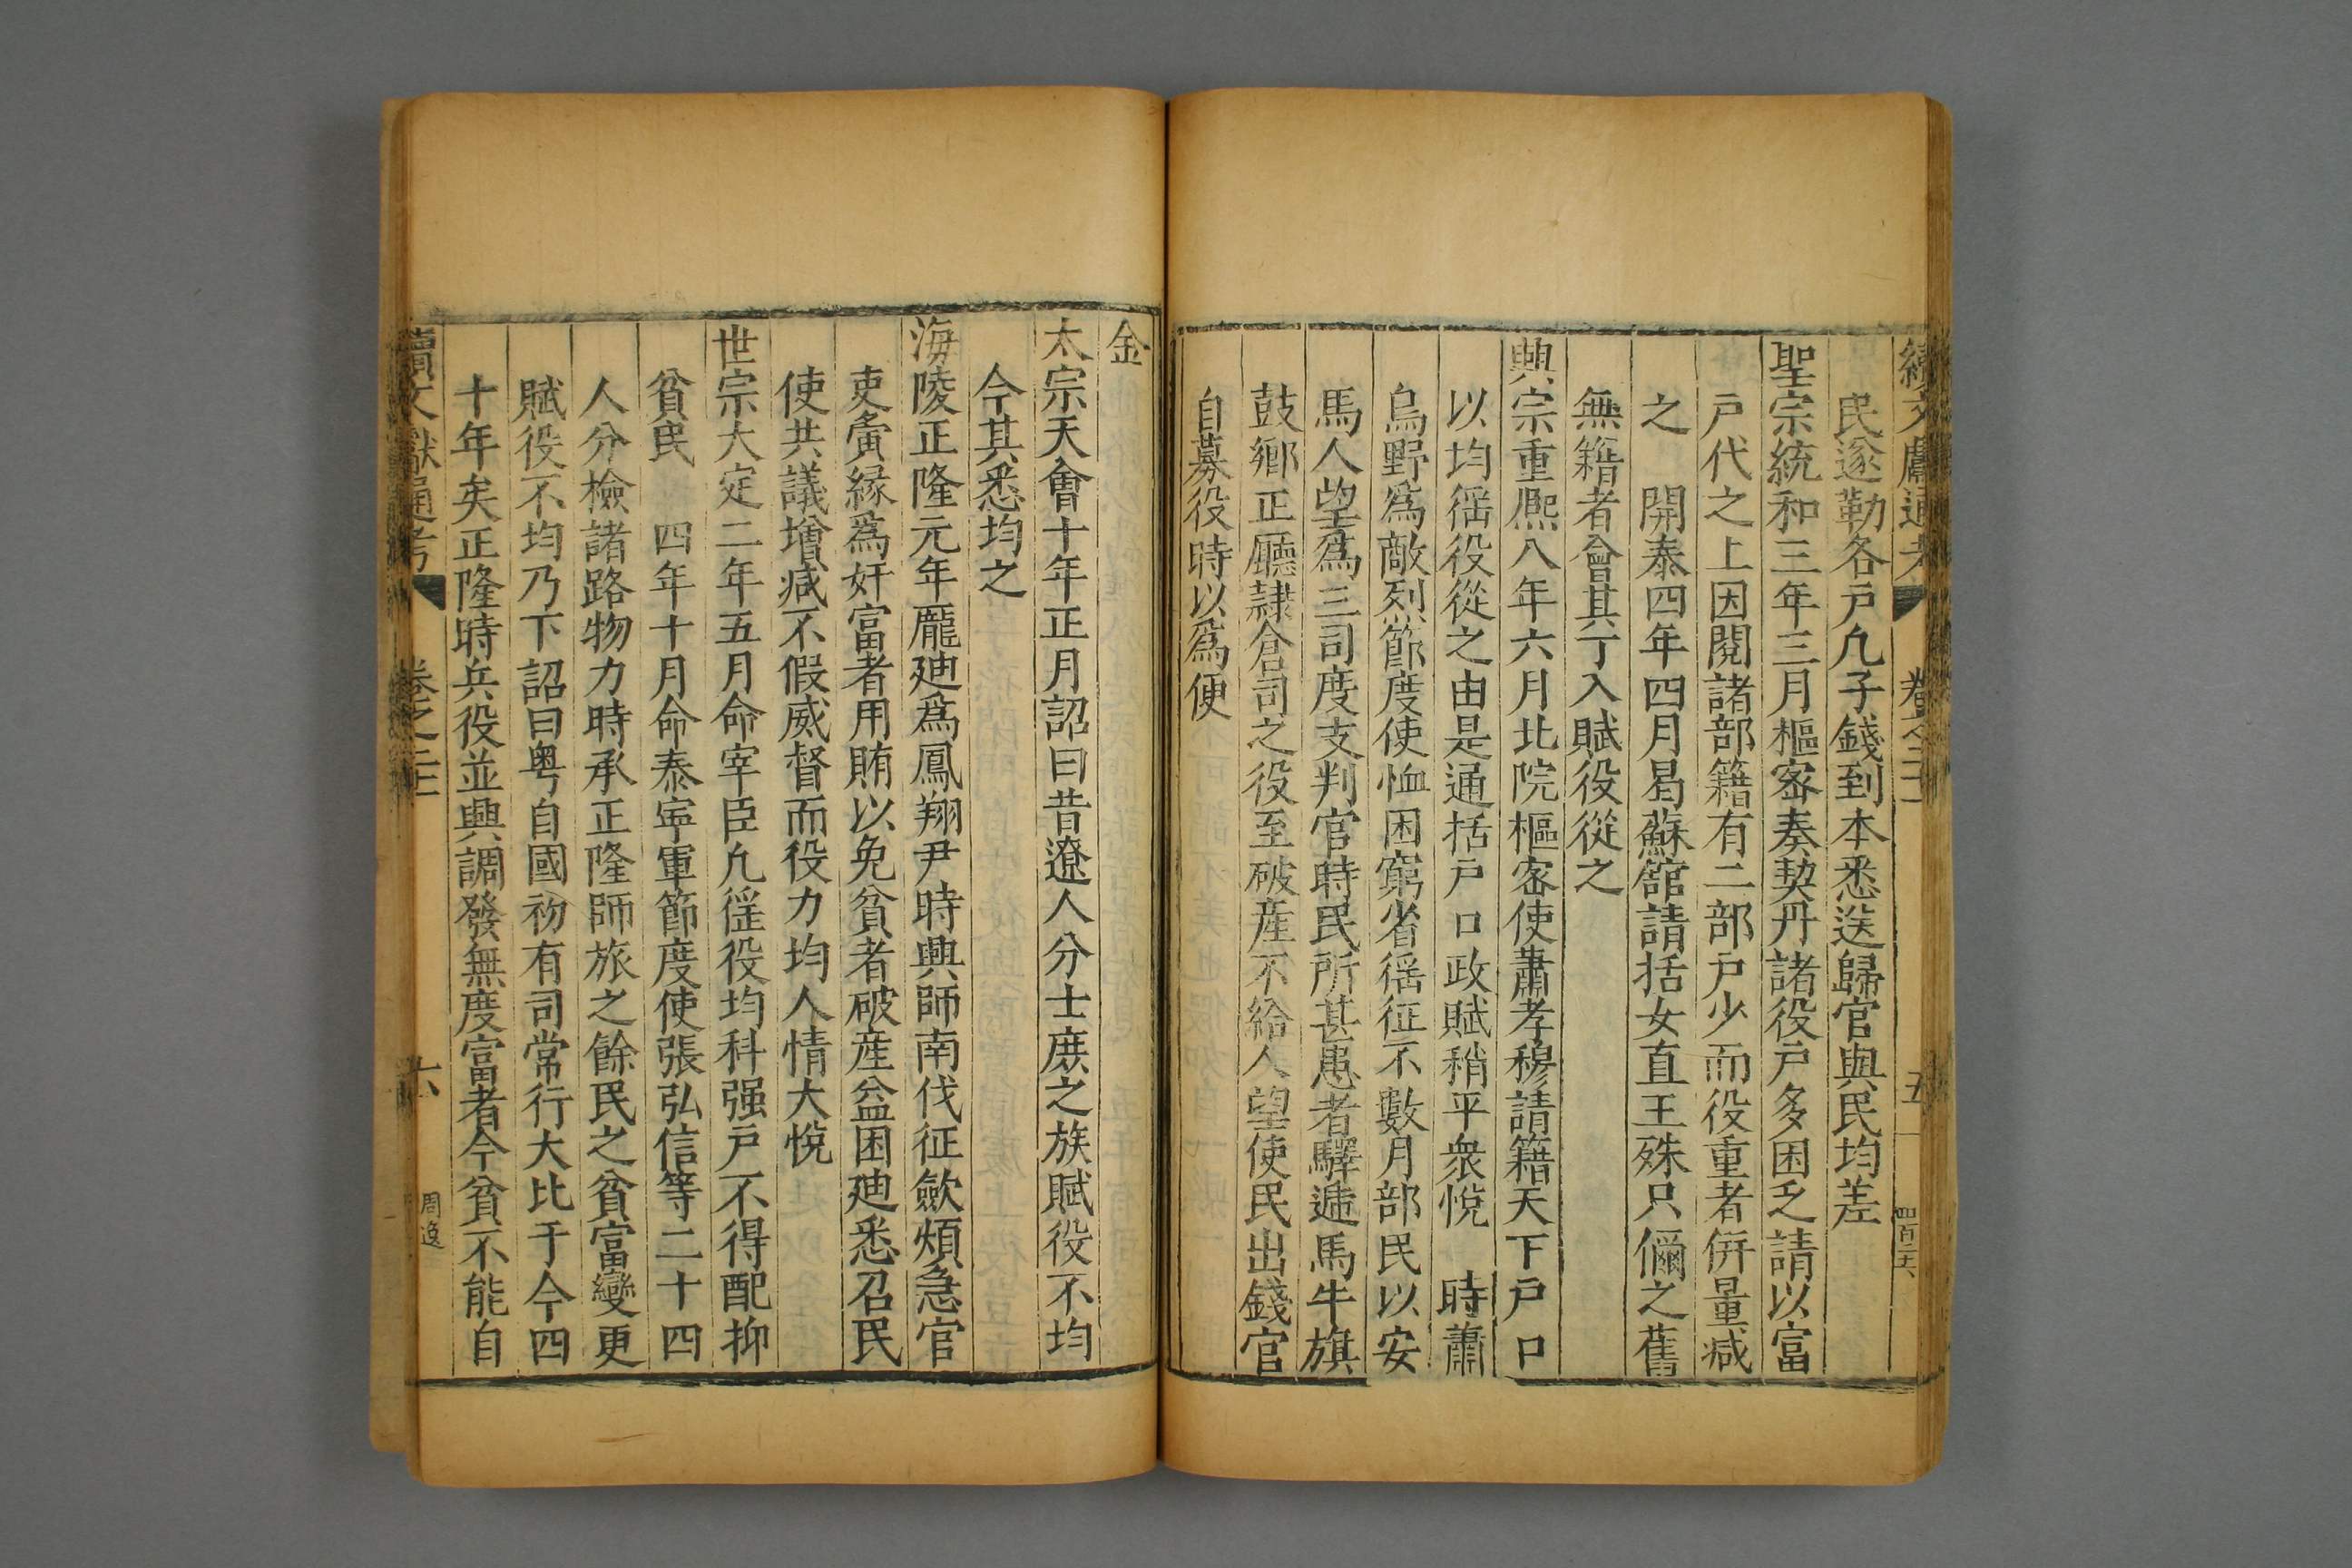 續文獻通考 卷之二十 五 四百二六
民遂勒各戸凢子錢到本悉送歸官與民均差
聖宗統和三年三月樞宻奏契丹諸役戸多困乏請以富
戸代之上因閲諸部籍有二部戸少而役重者併量减
之 開泰四年四月曷蘇舘請括女直王殊只儞之舊
無籍者㑹其丁入賦役從之
興宗重熈八年六月北院樞宻使蕭孝穆請籍天下戸口
以均徭役從之由是通括戸口政賦稍平衆悅 時蕭
烏野爲敵烈節度使恤困窮省徭征不數月部民以安
馬人望爲三司度支判官時民所甚患者驛逓馬牛旗
鼓鄉正廳隷倉司之役至破産不給人望使民出錢官
自募役時以爲便
金
太宗天㑹十年正月詔曰昔遼人分士庶之族賦役不均
今其悉均之
海陵正隆元年龎廸爲鳳翔尹時興師南伐征歛煩急官
吏夤縁爲奸富者用賄以免貧者破産益困廸悉召民
使共議增减不假威督而役力均人情大悅
世宗大定二年五月命宰臣凢徭役均科强戸不得配抑
貧民 四年十月命泰寜軍節度使張弘信等二十四
人分檢諸路物力時承正隆師旅之餘民之貧富變更
賦役不均乃下詔曰粤自國初有司常行大比于今四
十年矣正隆時兵役並興調發無度富者今貧不能自
續文獻通考 卷之二十 六 周逸